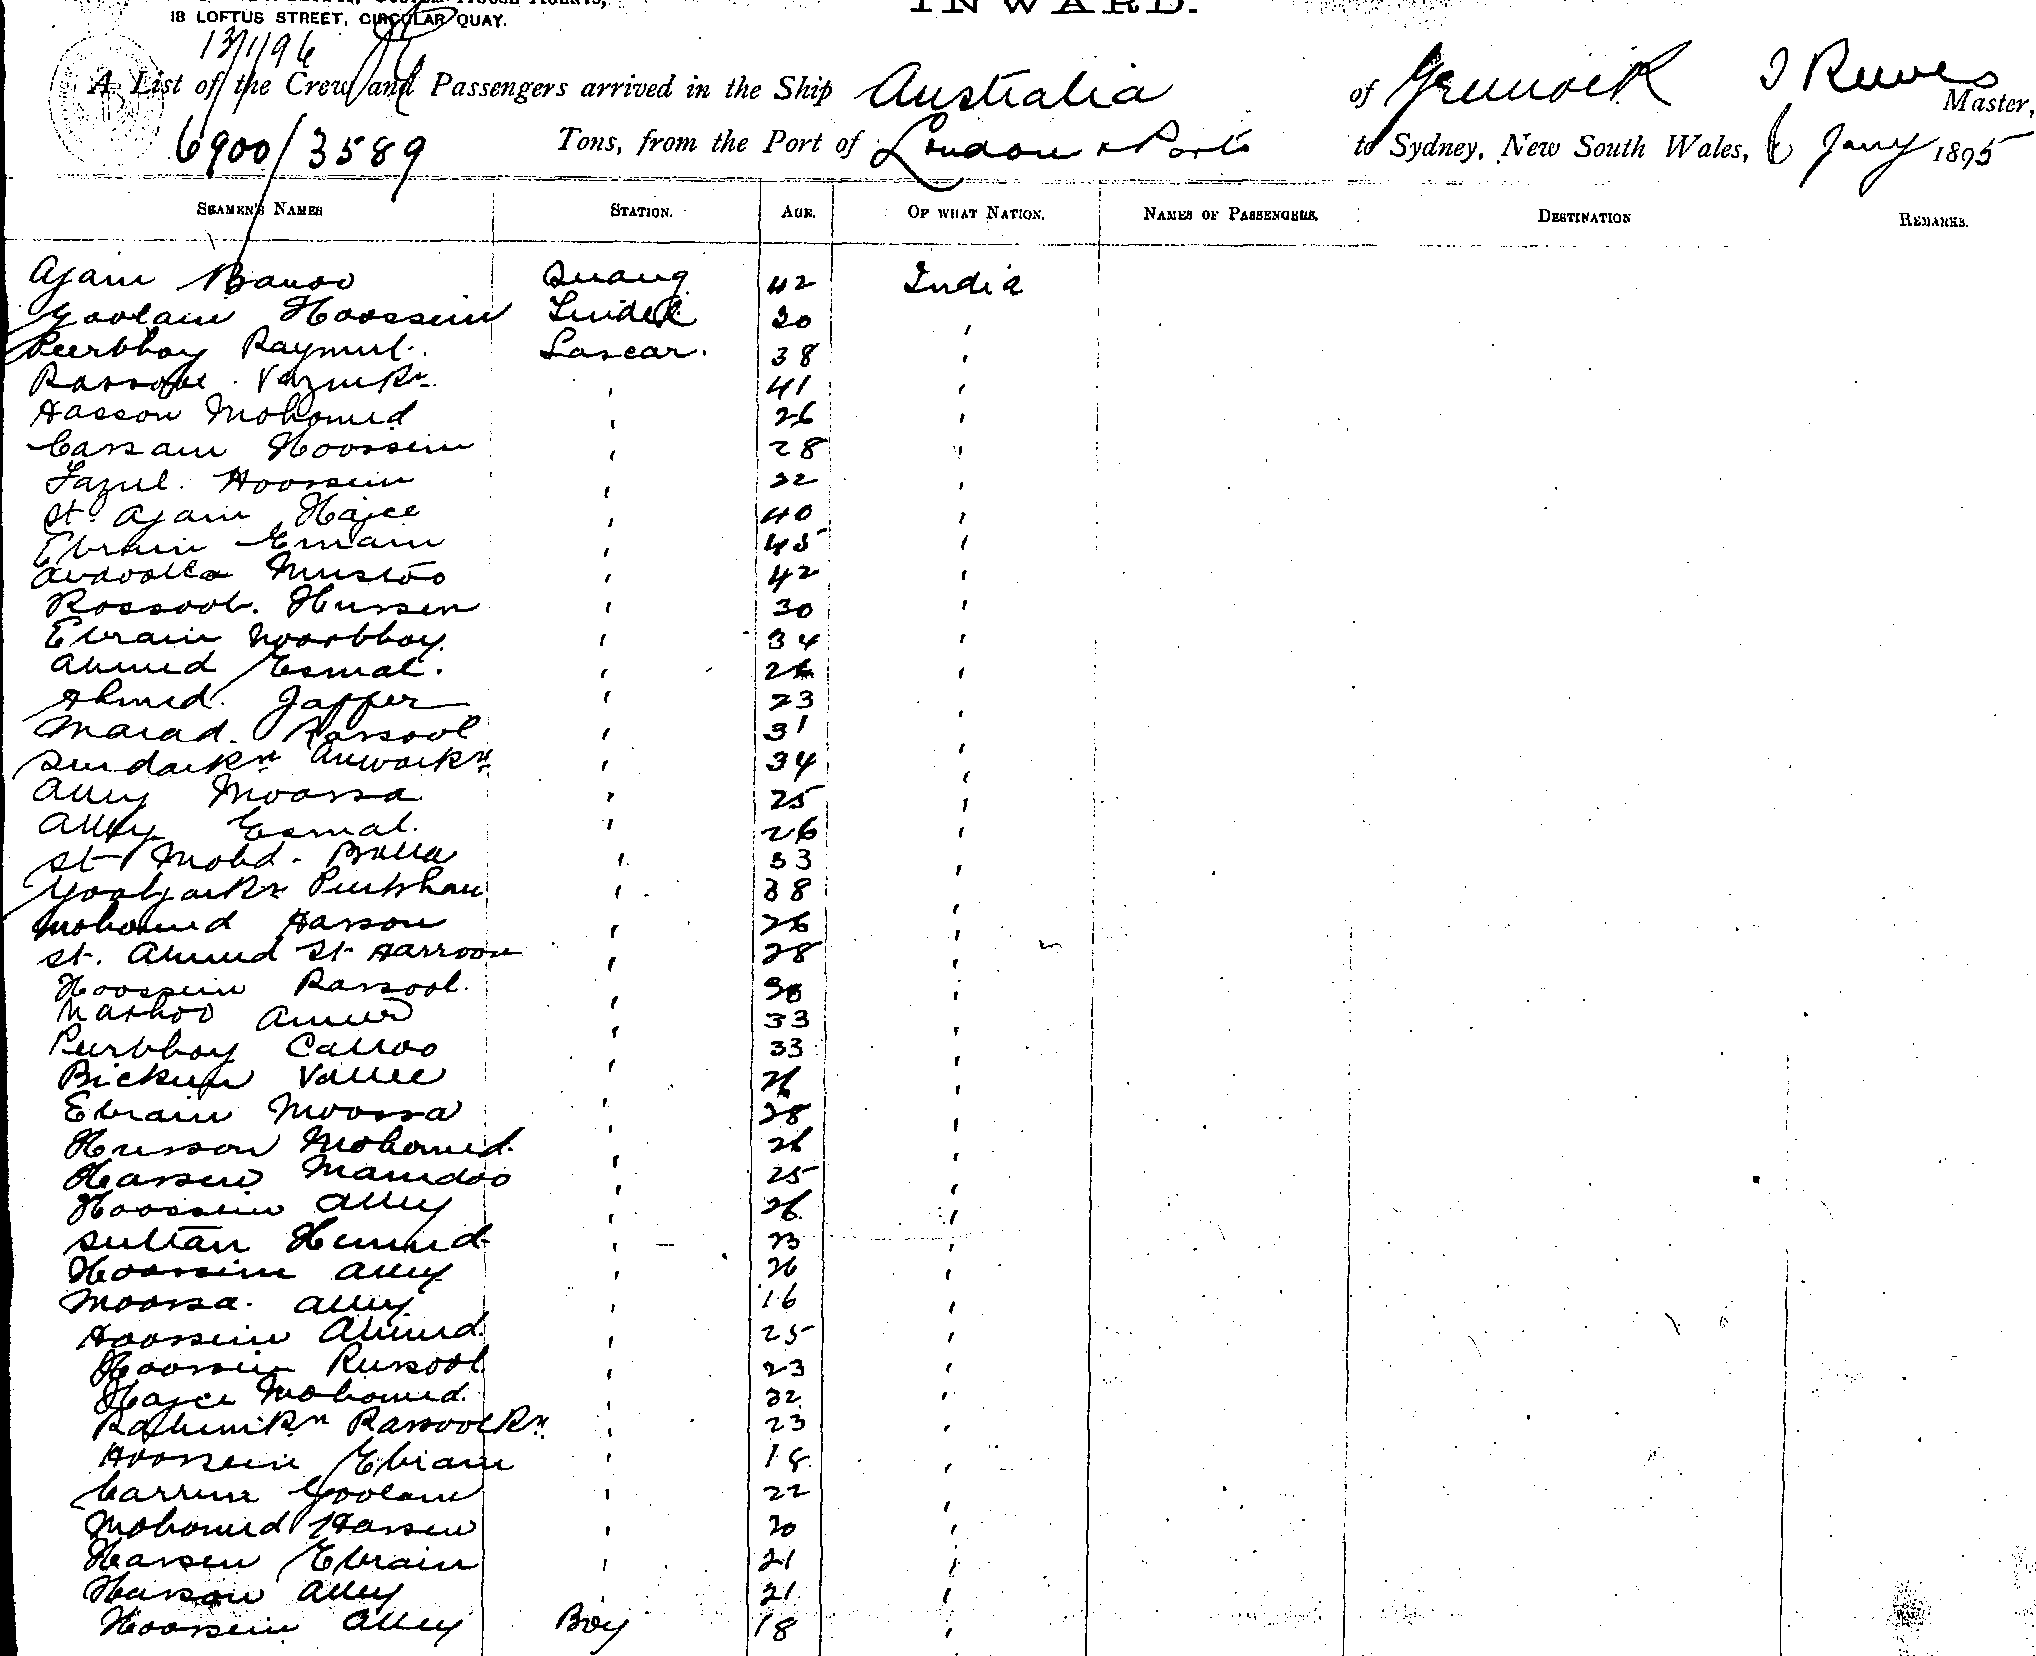 INWARD.
18 LOFTUS STREET, CIRCULAR QUAY.
13/1/96
A List of the Crew and Passengers arrived in the Ship Australia of Greenock I Reeves Master,
6900/3589 Tons, from the Port of London & Ports to Sydney, New South Wales, 6 Jany 1895
SEAMEN'S NAMES STATION. AGE. OF WHAT NATION. NAMES OF PASSENGERS. DESTINATION REMARKS.
Ajam Bawoo 42 India
Goolam Hoossein Tindel 30 "
Peerbhoy Raymul. Lascar. 38 "
Rassool 41 "
Hasson Mohomed " 26 "
Cassam Hoossein " 28 "
Fazul. Hoossein " 22 "
St. Ajam Hajee " 40 "
Ebraim Emam " 45 "
42 "
Rossool. Hussen " 30 "
Ebraim Noorbhoy. " 34 "
Ahmed Esmal. " 26 "
Ahmed. Jaffer " 23 "
Marad. Rassool " 31 "
" 34 "
Alley Moossa " 25 "
Alley Esmal. " 26 "
St Mohd. Balla " 33 "
" 38 "
Mohomed Hasson " 26 "
St. Ahmed St Harroon " 28 "
Hoossein Rassool. " 30 "
Nathoo " 33 "
Peerbhoy Calloo " 33 "
Bickun Vallee " 26 "
Ebraim Moossa " 28 "
Husson Mohomed. " 26 "
Hassen Mamdoo " 25 "
Hoossein Alley " 26 "
Sultan Hemed " 23 "
Hoossein Alley " 26 "
Moossa. Alley " 16 "
Hoossein Ahmed. " 25 "
Hoossein Russool " 23 "
Hajee Mohomed. " 32 "
Rahimkn Rassoolkn " 23 "
Hoossein Ebram " 18 "
Carrim Goolam " 22 "
Mohomed Hassen " 20 "
Hassen Ebraim " 21 "
Hasson Alley " 21 "
Hoossein Alley Boy 18 "